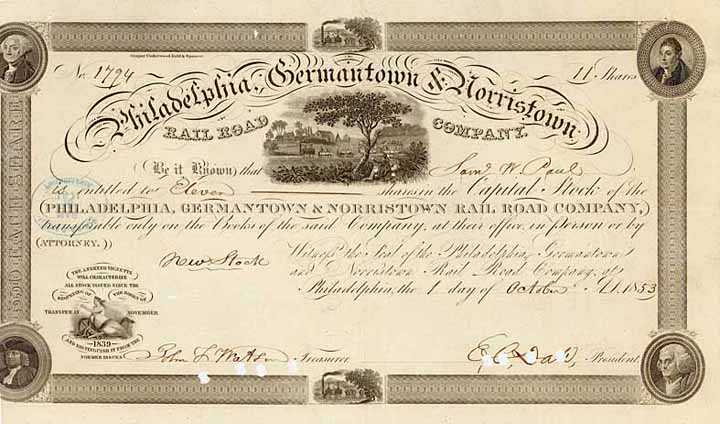 Draper Underwood Bald & Spencer
No. 1794 11 Shares
Philadelphia, Germantown & Norristown
RAIL ROAD COMPANY.
(Be it Known) that Saml W. Paul
is entitled to Eleven shares in the Capital Stock of the
(PHILADELPHIA, GERMANTOWN & NORRISTOWN RAIL ROAD COMPANY,)
transferable only on the Books of the said Company, at their office, in person or by
(ATTORNEY.)
New Stock
Witness the Seal of the Philadelphia, Germantown
and Norristown Rail Road Company, at
Philadelphia, the 1 day of October A.D. 1853
THE ANNEXED VIGNETTE
WILL CHARACTERIZE
ALL STOCK ISSUED SINCE THE
REOPENING OF THE BOOKS OF
TRANSFER IN NOVEMBER
1839
AND DISTINGUISH IT FROM THE
FORMER ISSUES
John S Watson Treasurer.
President.
$50 EACH SHARE